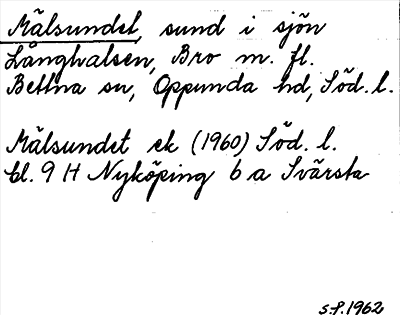 Mälsundet, sund i sjön
Långhalsen, Bro m. fl.
Bettna sn, Oppunda hd, Söd. l.
Mälsundet ek (1960) Söd. l.
bl. 9 H Nyköping 6 a Svärsta
s.f. 1962